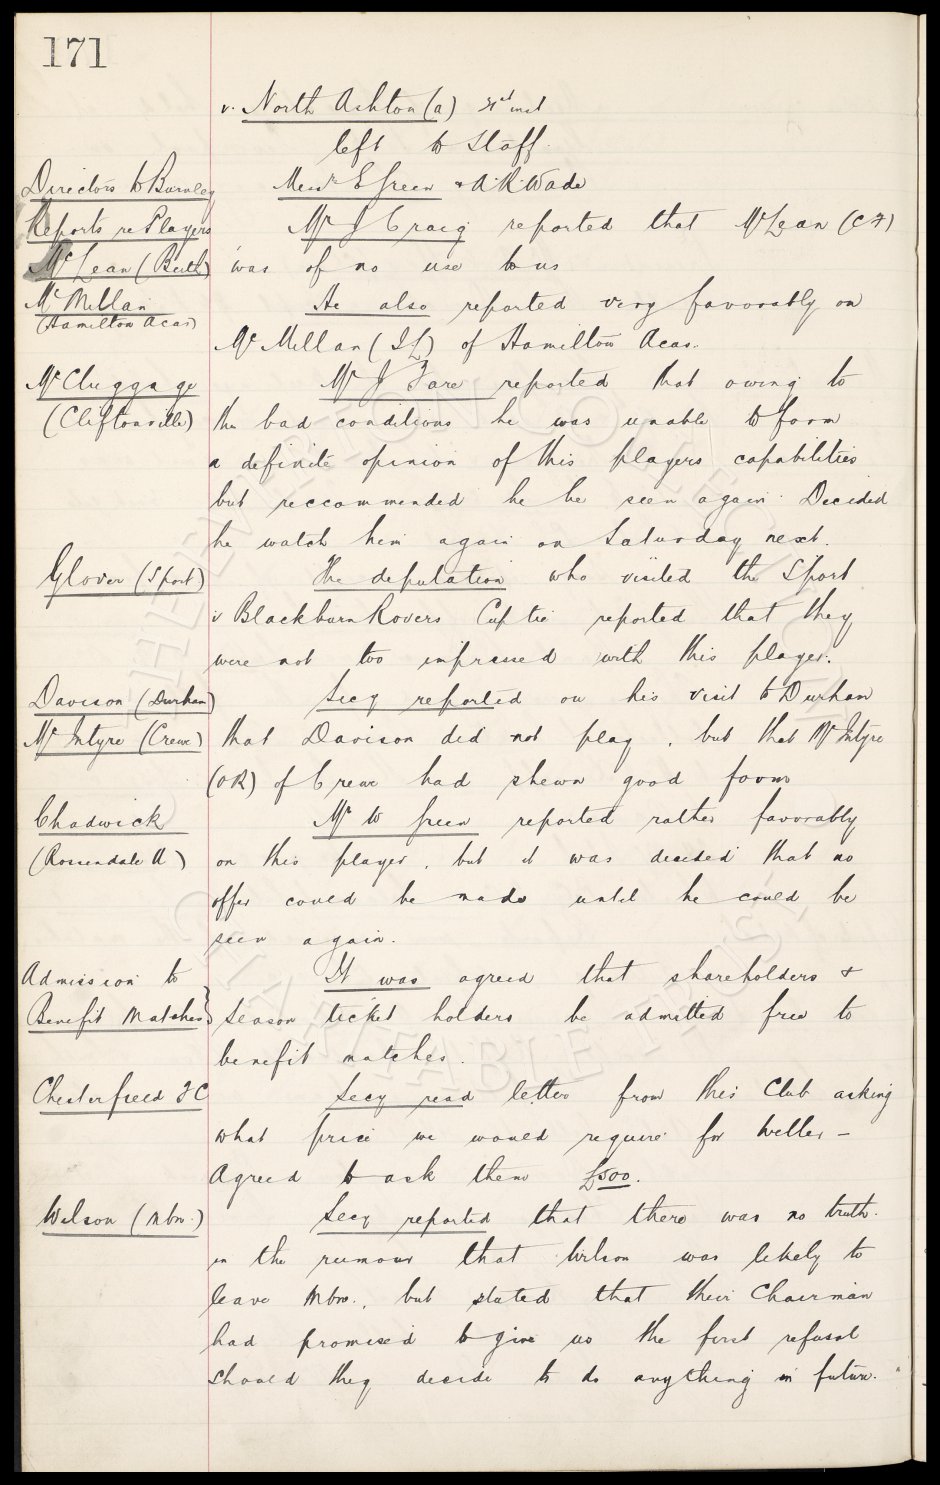 171
v. North Ashton (a) 21st inst
left to Staff.
Directors to Burnley Messrs E Green & A.R. Wade
Reports re Players Mr J Craig reported that McLean (CF)
McLean (Beith) was of no use to us
McMillan He also reported very favorably on
(Hamilton Acas)
McMillan (IL) of Hamilton Acas.
McCluggage Mr J Fare reported that owing to
(Cliftonville) the bad conditions he was unable to form
a definite opinion of this players capabilities
but reccommended he be seen again. Decided
he watch him again on Saturday next.
Glover (Sport) The deputation who visited the Sport
v Blackburn Rovers Cup tie reported that they
were not too impressed with this player.
Davison (Durham) Secy reported on his visit to Durham
McIntyre (Crewe) that Davison did not play, but that McIntyre
(OR) of Crewe had shewn good form
Chadwick Mr W Green reported rather favorably
(Rossendale U) on this player, but it was decided that no
offer could be made until he could be
seen again.
Admission to It was agreed that shareholders &
Benefit Matches} Season ticket holders be admitted free to
benefit matches.
Chesterfield FC Secy read letter from this Club asking
what price we would require for Weller -
Agreed to ask them £500.
Wilson (Mbro.) Secy reported that there was no truth
in the rumour that Wilson was likely to
leave Mbro., but stated that their Chairman
had promised to give us the first refusal
should they decide to do anything in future.